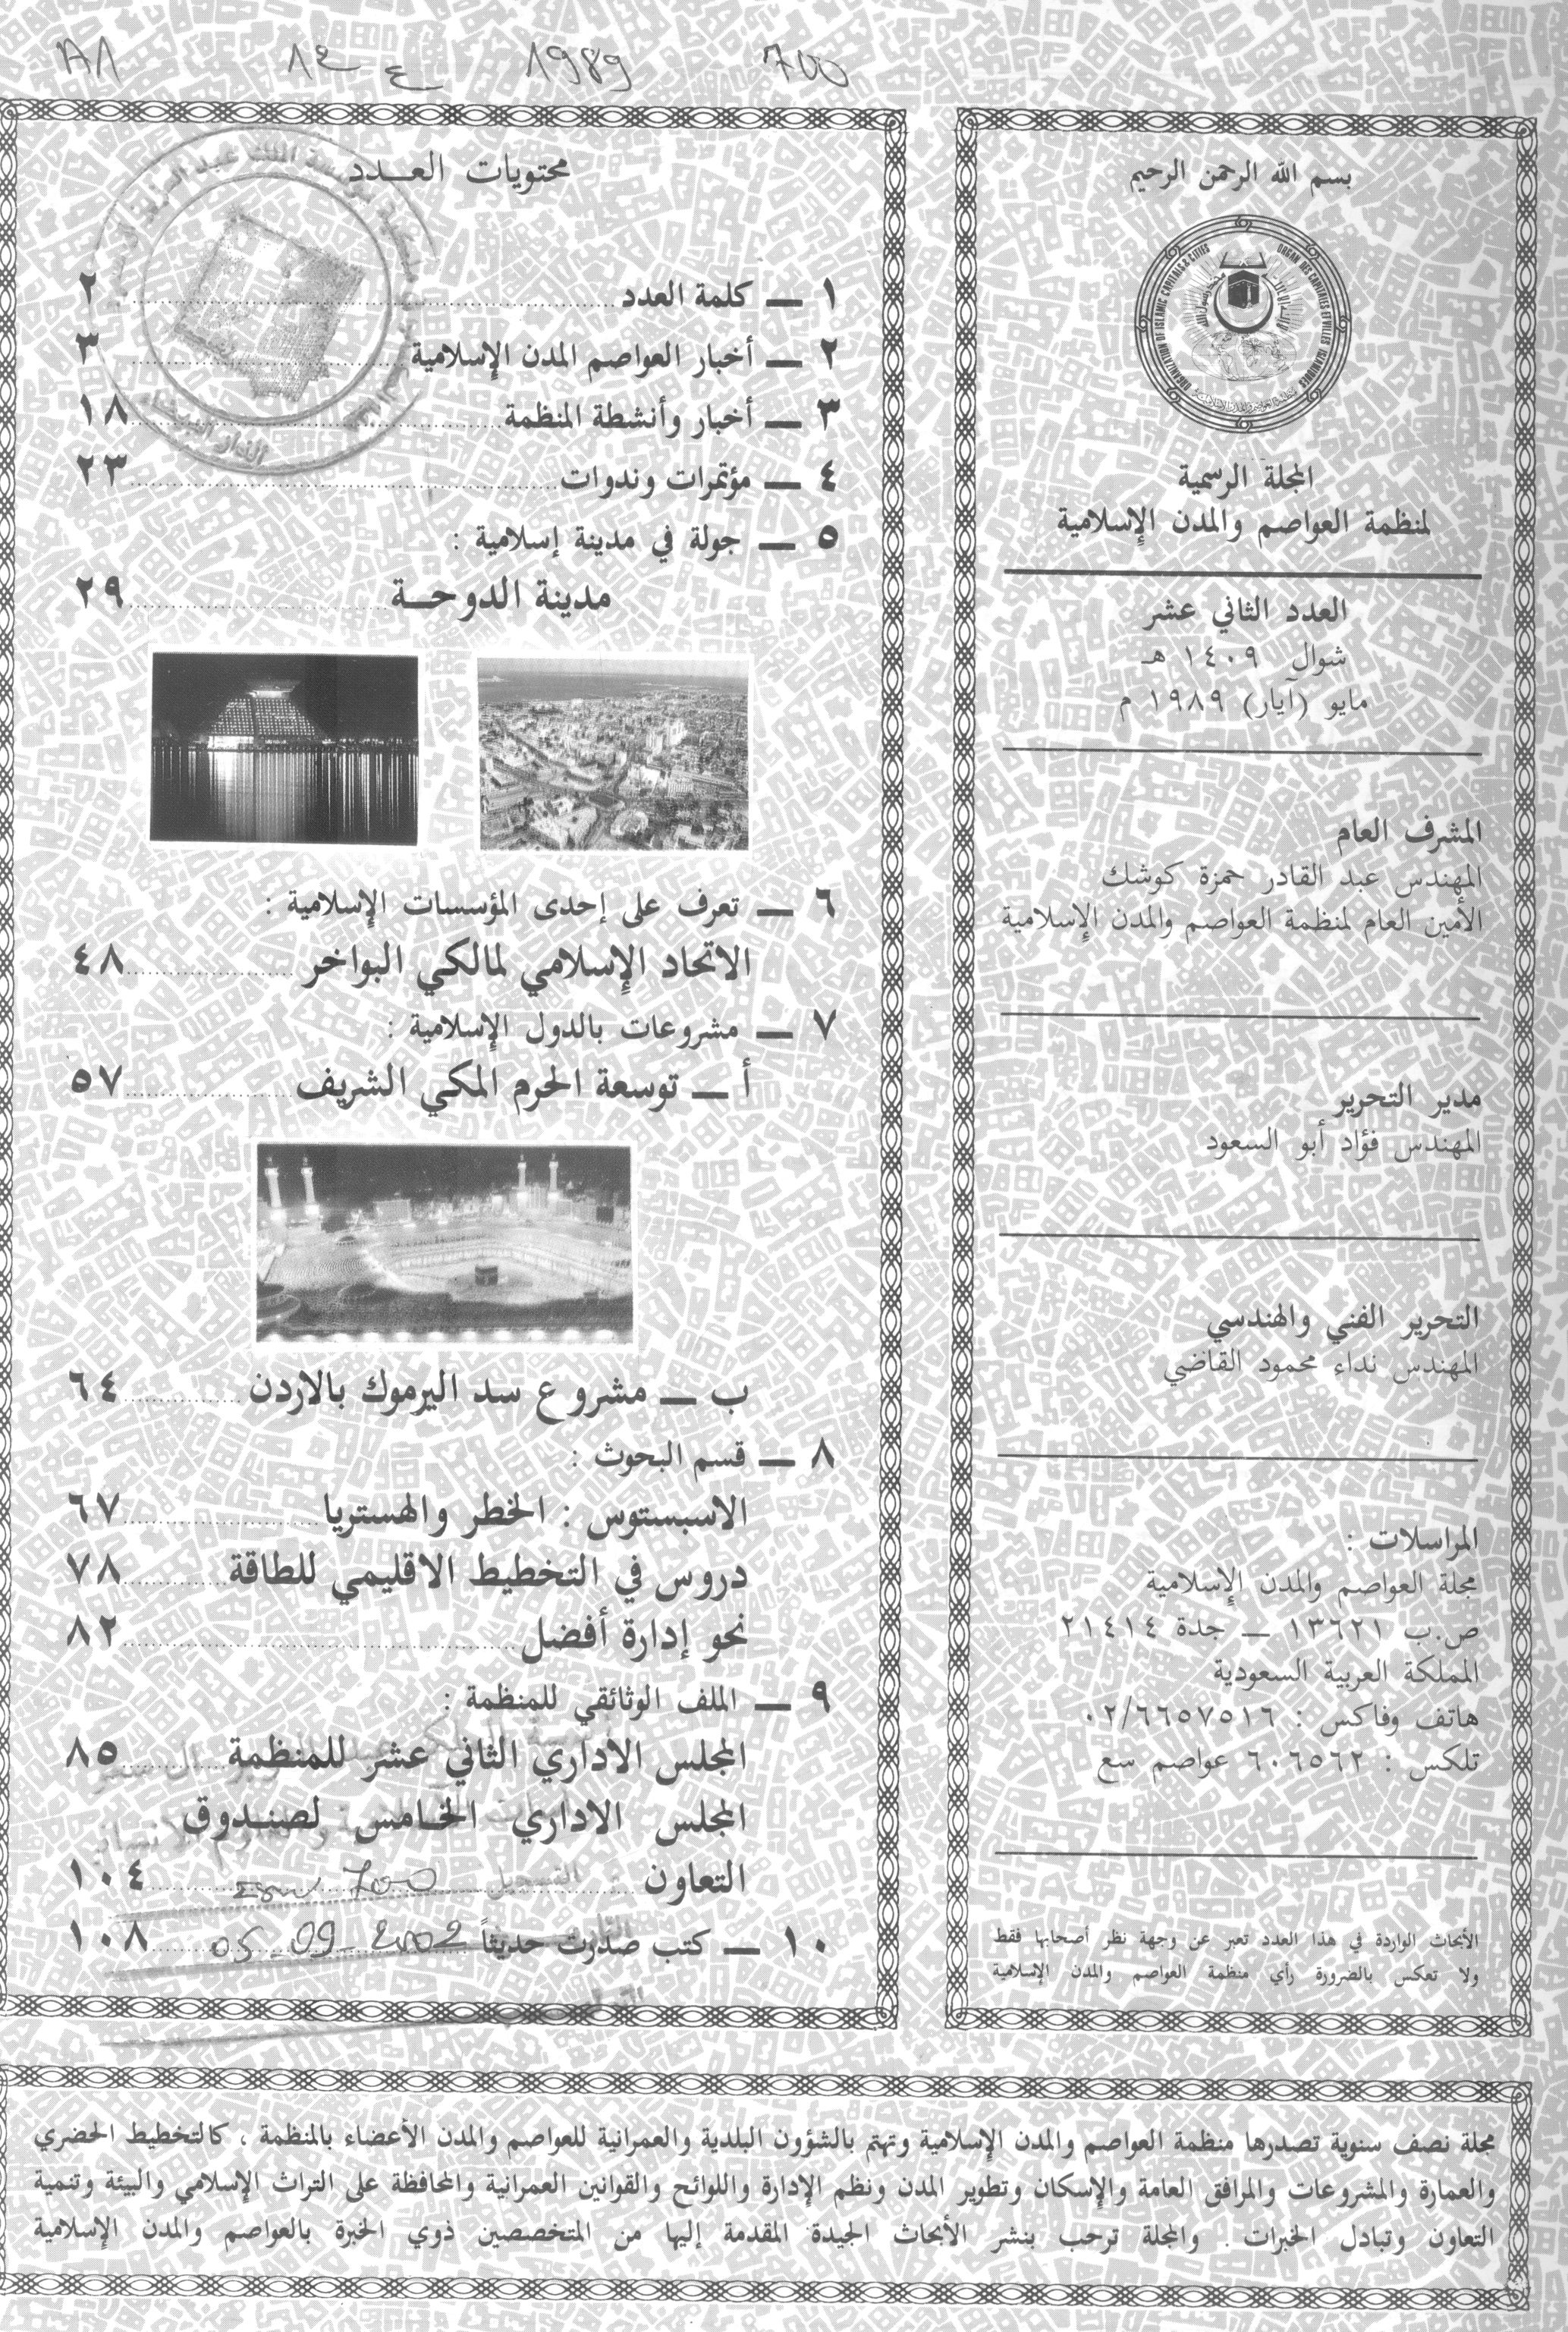 A1 12 ع 1989 700
بسم الله الرحمن الرحيم
ORGANIZATION OF ISLAMIC CAPITALS & CITIES
ORGAN. DES CAPITALES ET VILLES ISLAMIQUES
المجلة الرسمية
لمنظمة العواصم والمدن الإسلامية
العدد الثاني عشر
شوال ١٤٠٩ هـ
مايو (آيار) ١٩٨٩ م
المشرف العام
المهندس عبد القادر حمزة كوشك
الأمين العام لمنظمة العواصم والمدن الإسلامية
مدير التحرير
المهندس فؤاد أبو السعود
التحرير الفني والهندسي
المهندس نداء محمود القاضي
المراسلات :
مجلة العواصم والمدن الإسلامية
ص.ب ١٣٦٢١ — جدة ٢١٤١٤
المملكة العربية السعودية
هاتف وفاكس : ٠٢/٦٦٥٧٥١٦
تلكس : ٦٠٦٥٦٢ عواصم سع
الأبحاث الواردة في هذا العدد تعبر عن وجهة نظر أصحابها فقط
ولا تعكس بالضرورة رأي منظمة العواصم والمدن الإسلامية
محتويات العـدد
١ — كلمة العدد ٢
٢ — أخبار العواصم المدن الإسلامية ٣
٣ — أخبار وأنشطة المنظمة ١٨
٤ — مؤتمرات وندوات ٢٣
٥ — جولة في مدينة إسلامية :
مدينة الدوحـة ٢٩
٦ — تعرف على إحدى المؤسسات الإسلامية :
الاتحاد الإسلامي لمالكي البواخر ٤٨
٧ — مشروعات بالدول الإسلامية :
أ — توسعة الحرم المكي الشريف ٥٧
ب — مشروع سد اليرموك بالاردن ٦٤
٨ — قسم البحوث :
الاسبستوس : الخطر والهستريا ٦٧
دروس في التخطيط الاقليمي للطاقة ٧٨
نحو إدارة أفضل ٨٢
٩ — الملف الوثائقي للمنظمة :
المجلس الاداري الثاني عشر للمنظمة ٨٥
المجلس الاداري الخامس لصندوق
التعاون ١٠٤
١٠ — كتب صدرت حديثاً ١٠٨
05-09-2002
الدار البيضاء
مجلة نصف سنوية تصدرها منظمة العواصم والمدن الإسلامية وتهتم بالشؤون البلدية والعمرانية للعواصم والمدن الأعضاء بالمنظمة ، كالتخطيط الحضري
والعمارة والمشروعات والمرافق العامة والإسكان وتطوير المدن ونظم الإدارة واللوائح والقوانين العمرانية والمحافظة على التراث الإسلامي والبيئة وتنمية
التعاون وتبادل الخبرات . والمجلة ترحب بنشر الأبحاث الجيدة المقدمة إليها من المتخصصين ذوي الخبرة بالعواصم والمدن الإسلامية